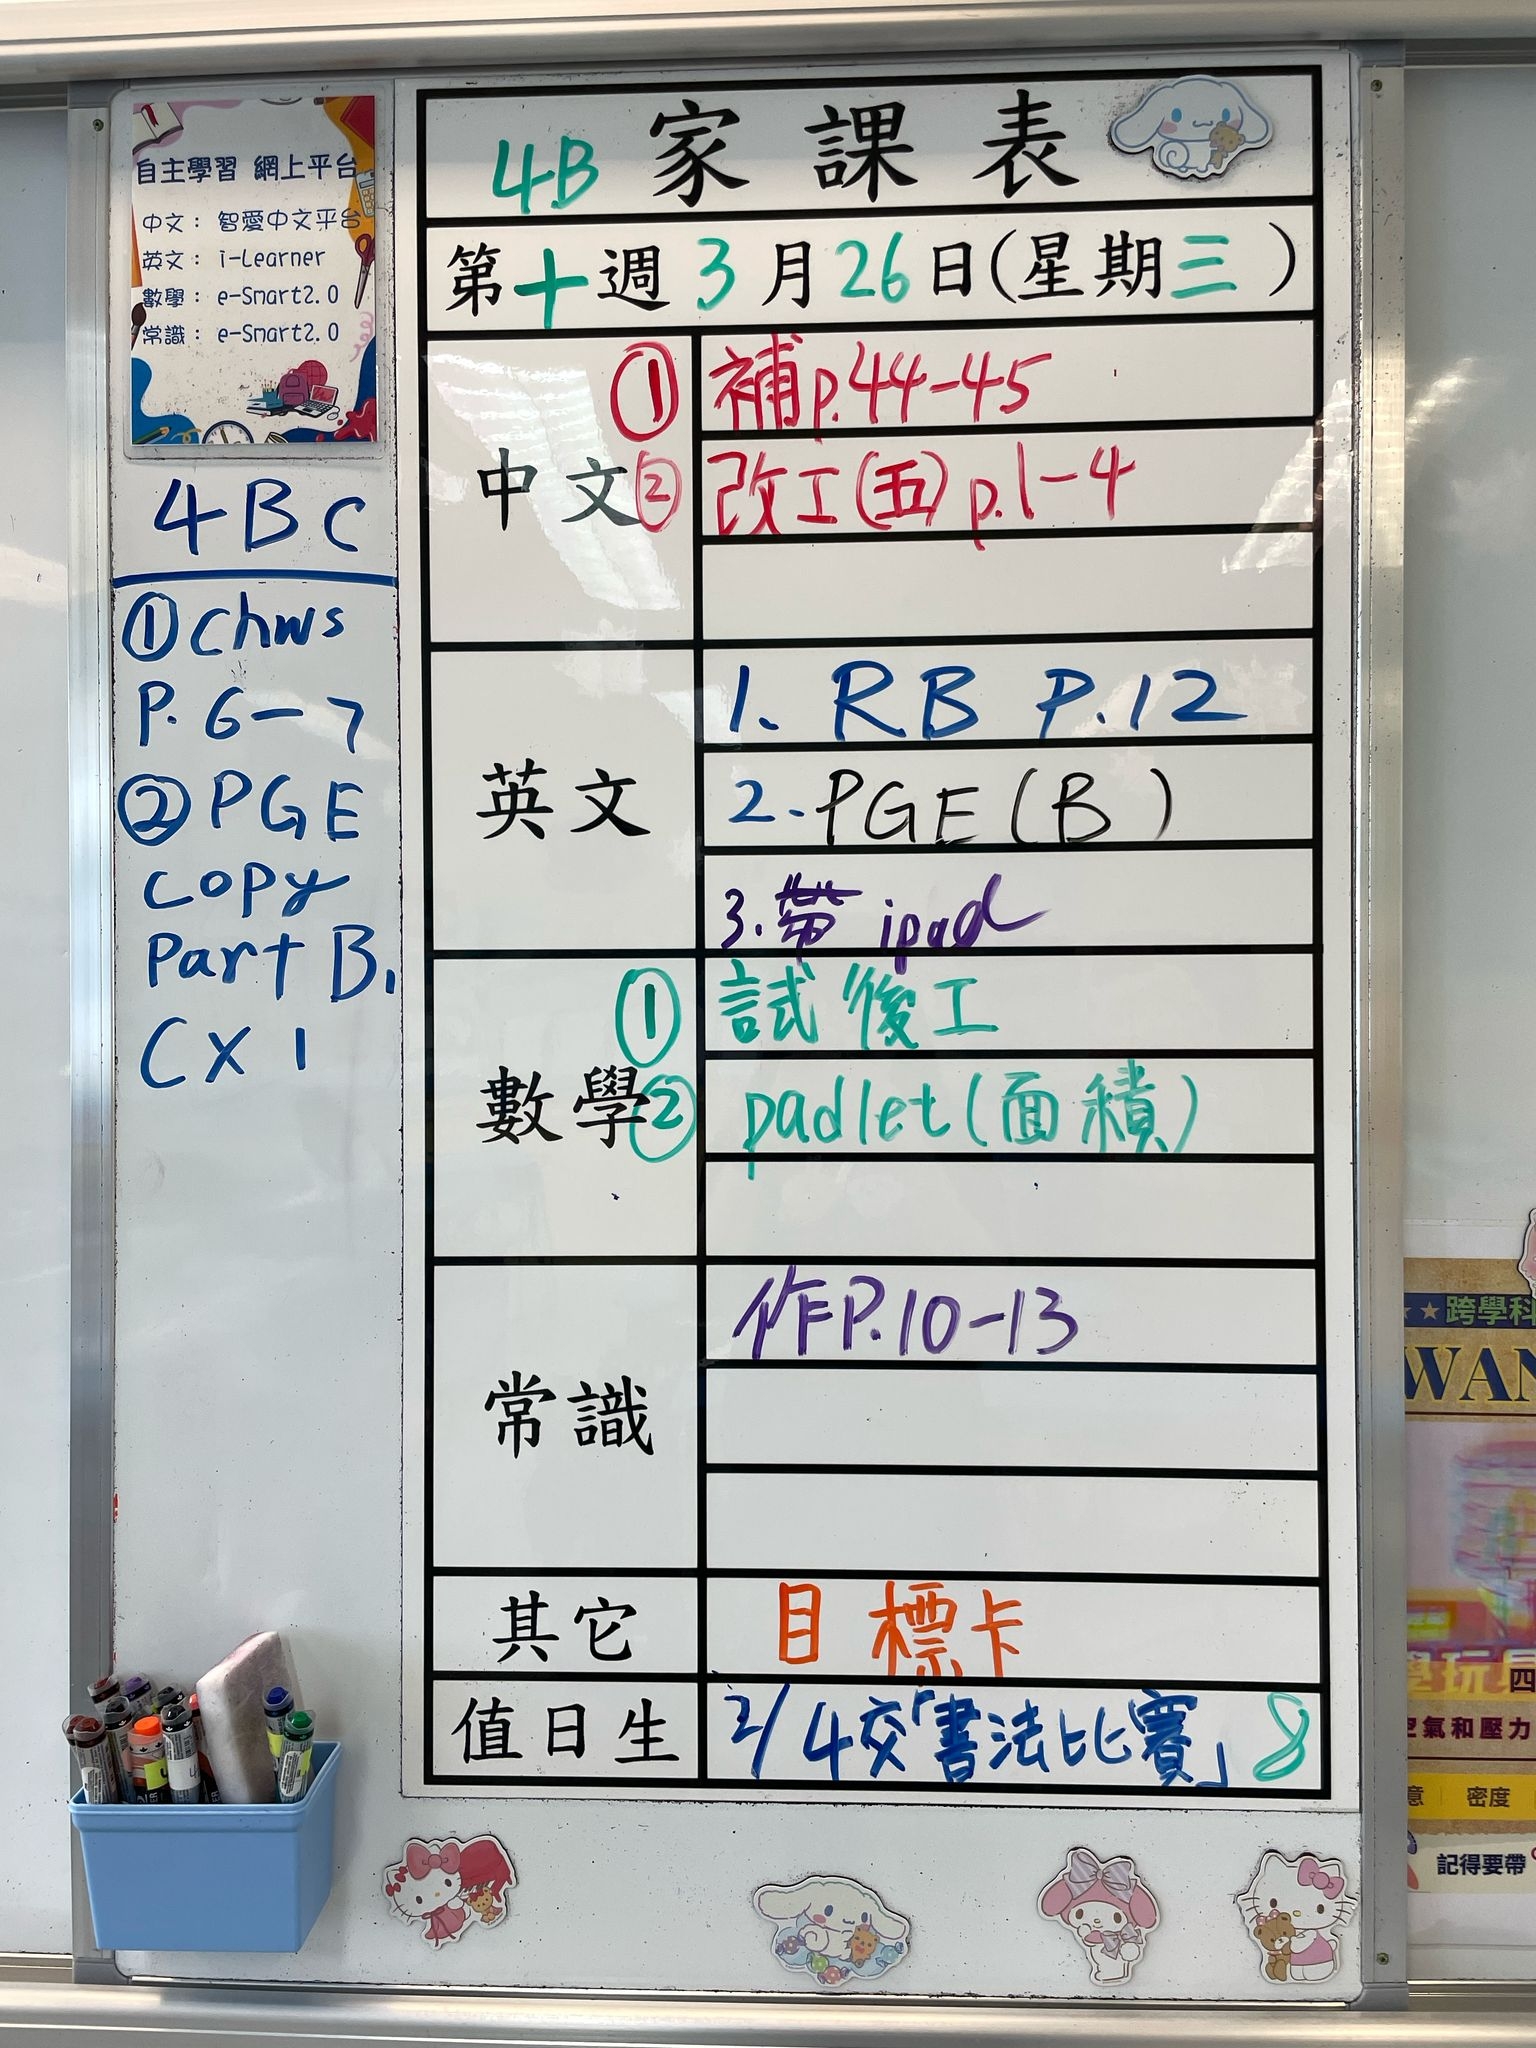 自主學習 網上平台
中文： 智愛中文平台
英文： i-Learner
數學： e-Smart2.0
常識： e-Smart2.0
4BC
①Chws
P. 6-7
②PGE
copy
Part B.
CX1
4B 家課表
第十週 3月26日(星期三)
中文
① 補p.44-45
② 改工(五)p.1-4
英文
1. RB P.12
2. PGE(B)
3. 帶 ipad
數學
① 試後工
② padlet(面積)
常識
作P.10-13
其它
目標卡
值日生
2/4交「書法比賽」 8
跨學科
WAN
學玩具
四
空氣和壓力
意 密度
記得要帶